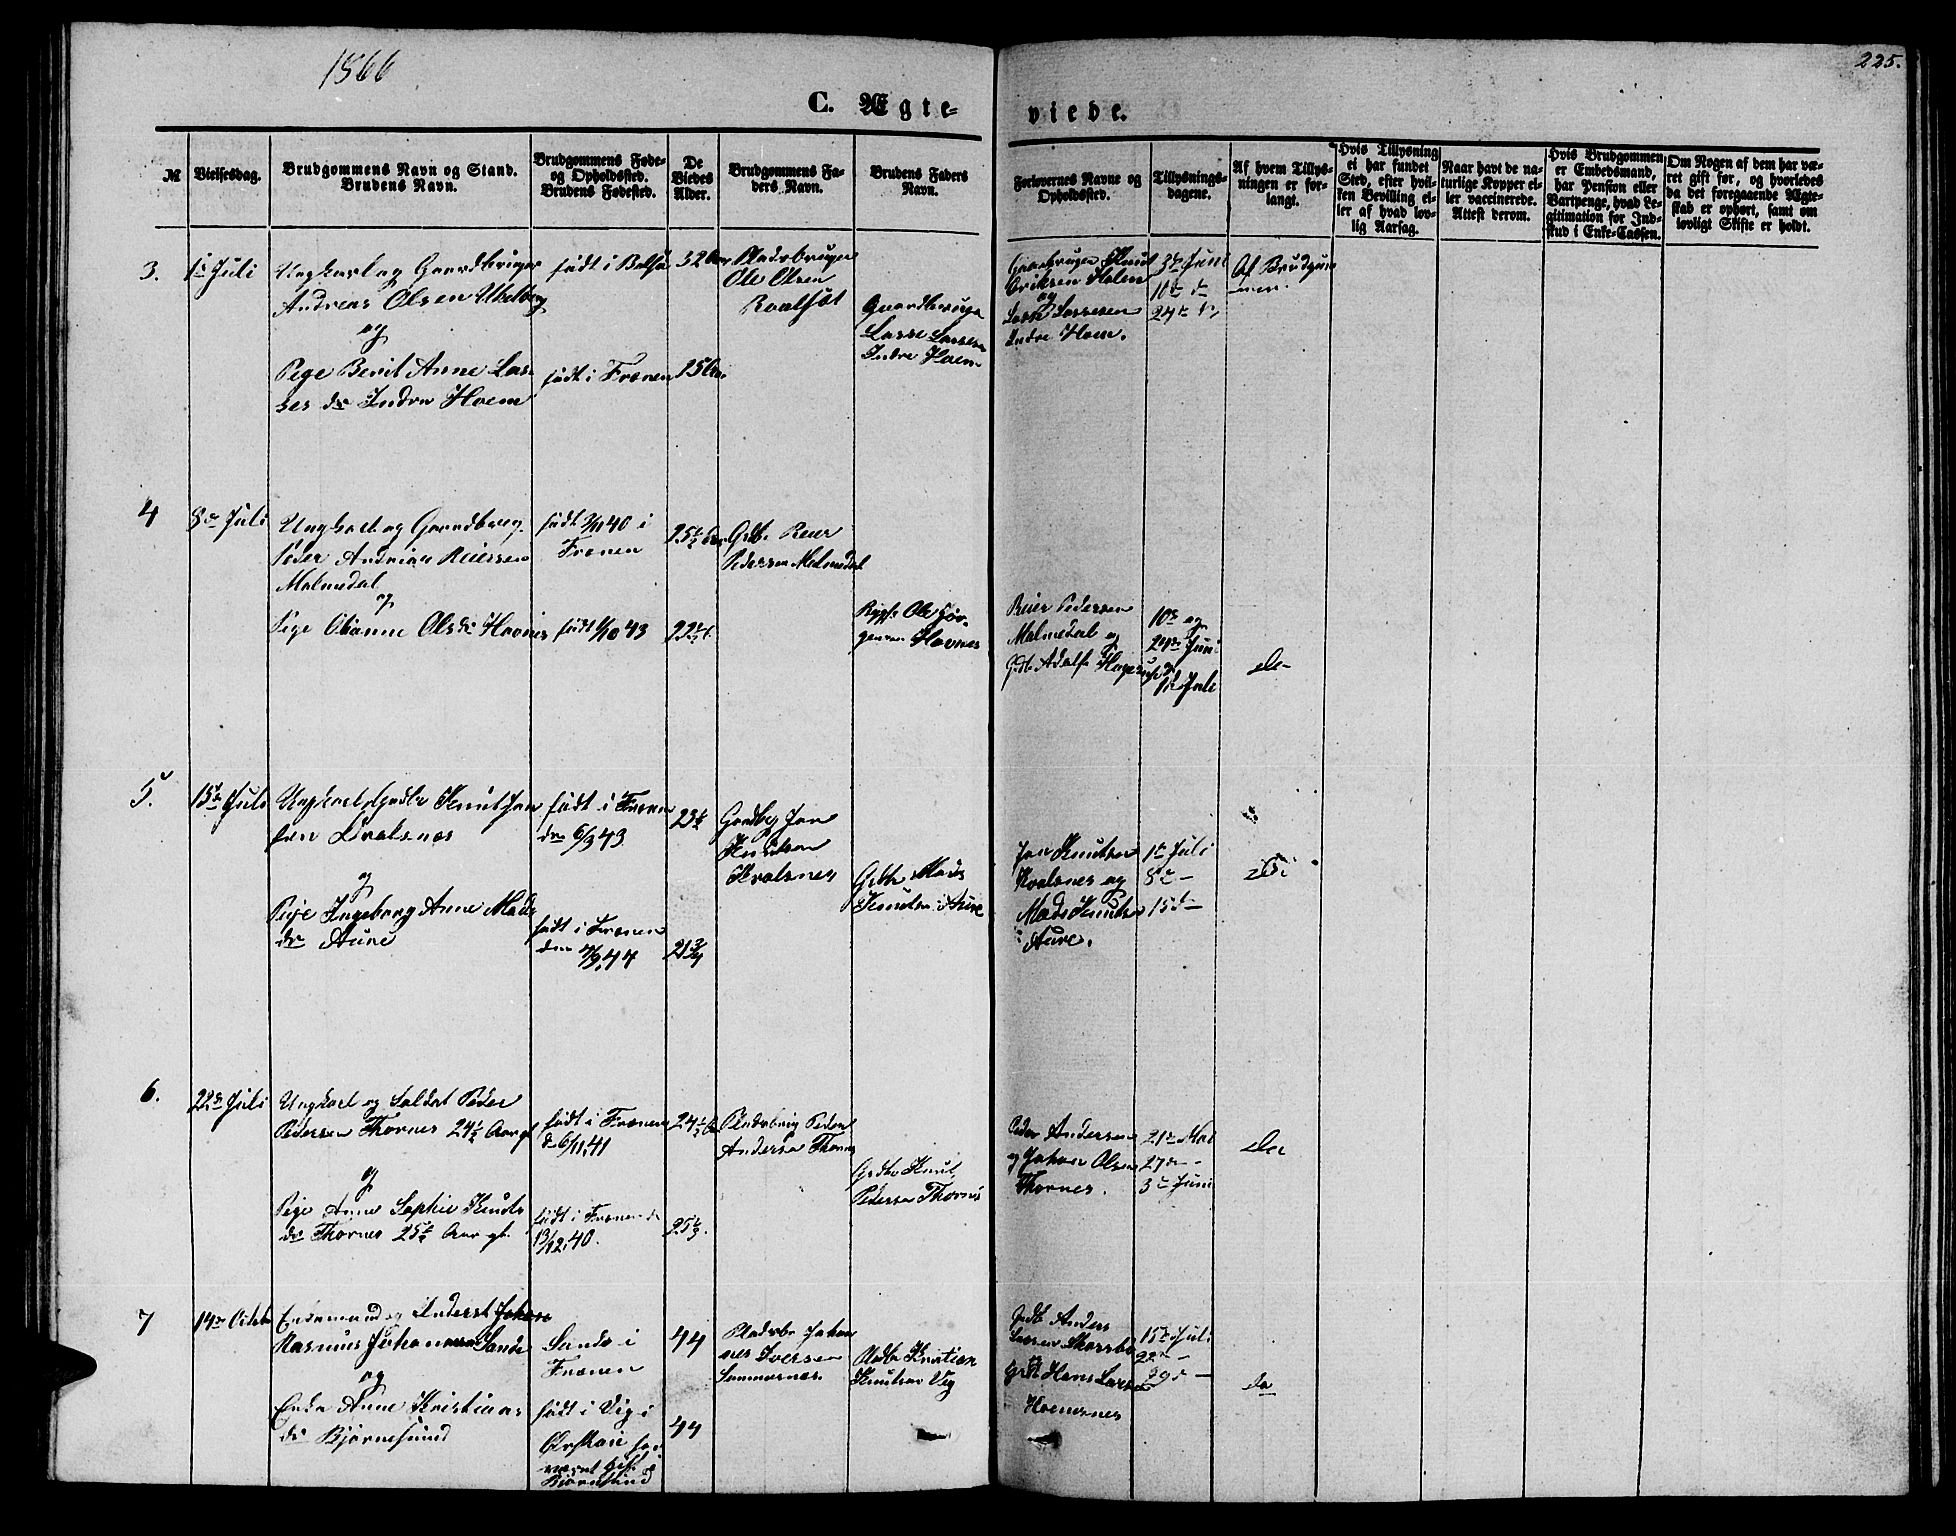 1866
225.
C. Ægte-
viede.
№
Vielsesdag.
Brudgommens Navn og Stand.
Brudens Navn.
Brudgommens Føde-
og Opholdssted.
Brudens Fødested.
De
Viedes
Alder.
Brudgommens Fa-
ders Navn.
Brudens Faders
Navn.
Forlovernes Navne og
Opholdssted.
Tillysnings-
dagene.
Af hvem Tillys-
ningen er for-
langt.
Hvis Tillysning
ei har fundet
Sted, efter hvil-
ken Bevilling el-
ler af hvad lov-
lig Aarsag.
Naar havt de na-
turlige Kopper el-
ler vaccinerede.
Attest derom.
Hvis Brudgommen
er Embedsmand,
har Pension eller
Vartpenge, hvad Le-
gitimation for Ind-
skud i Enke-Cassen.
Om Nogen af dem har væ-
ret gift før, og hvorledes
da det foregaaende Ægte-
skab er ophørt, samt om
lovligt Skifte er holdt.
3.
1ste Juli
Ungkarl og Gaardbruger
Andreas Olsen
og
Pige Berit Anne Las-
ses dr Indre Hoem
født i Bolsø
født i Frænen
32 Aar
25 Aar
Pladsbruger
Ole Olsen
Gaardbruger
Lasse Lassesen
Indre Hoem
Gaardbruger Knut
Eriksen Holen
og
Lasse Lassesen
Indre Hoem.
3de Juni
10de do
24de do
Af Brudgom-
men.
4
8de Juli
Ungkarl og Gaardbrug.
Peder Andrias Reiersen
Malmedal
og
Pige Olianne Olsdr Havnes
født 2/11 40 i
Frænen
født 1/10 43
25½ Aar
22
Grdb. Reier
Pedersen Malmedal
Ole Jør-
gensen Havnes
Reier Pedersen
Malmedal og
Grdb. Adolf
10de og
24de Juni
1ste Juli
do
5.
15de Juli
Ungkarl Grdbr Knut Jan
sen Kvalsnes
og
Pige Ingeborg Anne Mads
dr Aure
født i Frænen
den 6/3 43
født i Frænen
den 44
23
21¾
Gaardbg Jan
Knutsen
Kvalsnes
Grdbr Mads
Knutsen Aure
Jan Knutsen
Kvalsnes og
Mads Knutsen
Aure.
1ste Juli
8de –
15de –
do
6.
22de Juli
Ungkarl og Soldat Peder
Pedersen Thornes 24½ Aar gl
og
Pige Anne Sophie Knuts
dr Thornes 25 Aar gl.
født i Frænen
d 6/11 41
født i Frænen d
13/12 40.
24½
25
Pladsbrug Peder
Andersen Thornes
Grdbr Knut
Pedersen Thornes
Peder Andersen
og Johan Olsen
Thornes.
21de Mai
27de –
3de Juni
do
7
14de Octob
Enkemand og
Rasmus Johannesen Sande
og
Enke Anne Kristians
dr Bjørnesund
Sande i
Frænen
født i Vig i
44
44
Pladsbr Johan
nes Iversen
Pladsbr Kristian
Knutsen Vig
Grdb. Anders
Grdb Hans Larsen
Hoemsnes
15de Juli
22de –
29de –
do